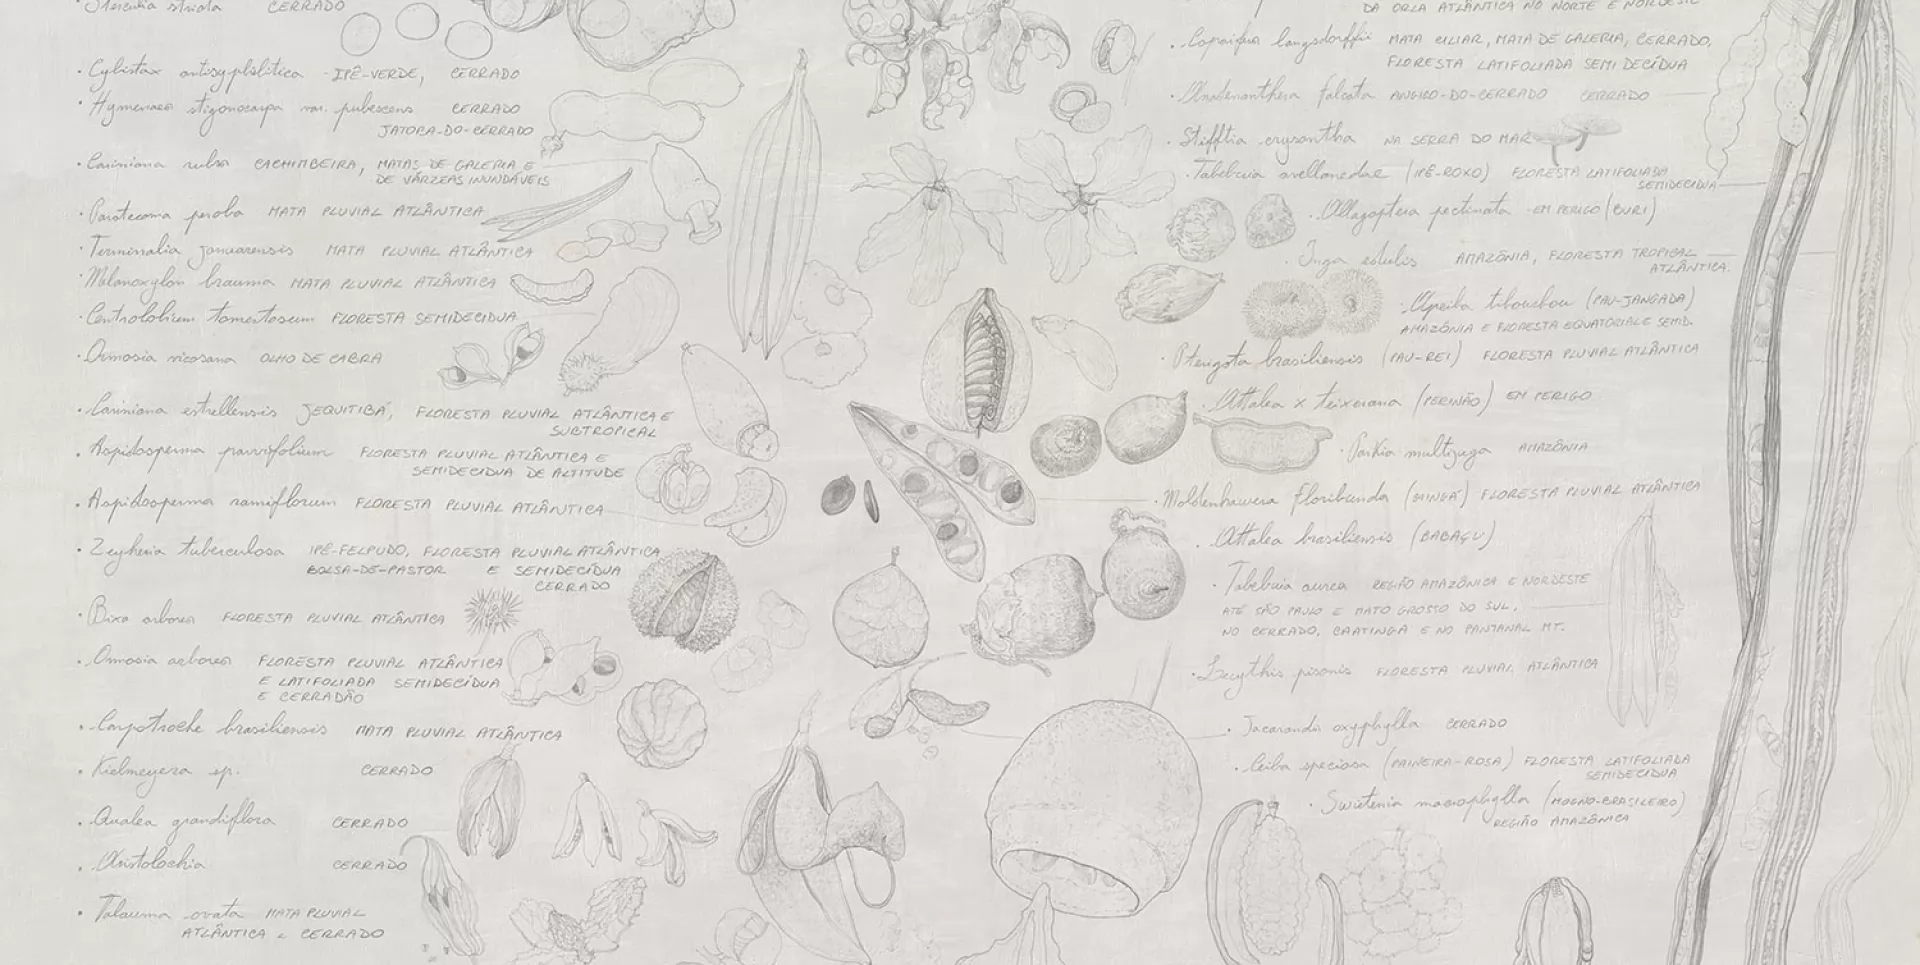 Sterculia striata CERRADO
Cybistax antisyphilitica - IPÊ-VERDE, CERRADO
Hymenaea stigonocarpa var. pubescens CERRADO
JATOBA-DO-CERRADO
Cariniana rubra CACHIMBEIRA, MATAS DE GALERIA E
DE VÁRZEAS INUNDÁVEIS
Paratecoma peroba MATA PLUVIAL ATLÂNTICA
Terminalia januarensis MATA PLUVIAL ATLÂNTICA
Melanoxylon brauna MATA PLUVIAL ATLÂNTICA
Centrolobium tomentosum FLORESTA SEMIDECIDUA
Ormosia nicosana OLHO DE CABRA
Cariniana estrellensis JEQUITIBÁ, FLORESTA PLUVIAL ATLÂNTICA E
SUBTROPICAL
Aspidosperma parvifolium FLORESTA PLUVIAL ATLÂNTICA E
SEMIDECIDUA DE ALTITUDE
Aspidosperma ramiflorum FLORESTA PLUVIAL ATLÂNTICA
Zeyheria tuberculosa IPÊ-FELPUDO, FLORESTA PLUVIAL ATLÂNTICA
BOLSA-DE-PASTOR E SEMIDECÍDUA
CERRADO
Bixa arborea FLORESTA PLUVIAL ATLÂNTICA
Ormosia arborea FLORESTA PLUVIAL ATLÂNTICA
E LATIFOLIADA SEMIDECÍDUA
E CERRADÃO
Carpotroche brasiliensis MATA PLUVIAL ATLÂNTICA
Kielmeyera sp. CERRADO
Qualea grandiflora CERRADO
Aristolochia CERRADO
Talauma ovata MATA PLUVIAL
ATLÂNTICA e CERRADO
DA ORLA ATLÂNTICA NO NORTE E NORDESTE
Copaifera langsdorffii MATA CILIAR, MATA DE GALERIA, CERRADO,
FLORESTA LATIFOLIADA SEMIDECÍDUA
Anadenanthera falcata ANGICO-DO-CERRADO CERRADO
Stifftia crysantha NA SERRA DO MAR
Tabebuia avellanedae (IPÊ-ROXO) FLORESTA LATIFOLIADA
SEMIDECIDUA
Allagoptera pectinata - EM PERIGO (BURI)
Inga edulis AMAZÔNIA, FLORESTA TROPICAL
ATLÂNTICA.
Apeiba tibourbou (PAU-JANGADA)
AMAZÔNIA E FLORESTA EQUATORIAL E SEMID.
Pterigota brasiliensis (PAU-REI) FLORESTA PLUVIAL ATLÂNTICA
Attalea x teixeirana (PERINÃO) EM PERIGO
Parkia multijuga AMAZÔNIA
Moldenhawera floribunda FLORESTA PLUVIAL ATLÂNTICA
Attalea brasiliensis (BABAÇU)
Tabebuia aurea REGIÃO AMAZÔNICA E NORDESTE
ATÉ SÃO PAULO E MATO GROSSO DO SUL,
NO CERRADO, CAATINGA E NO PANTANAL MT.
Lecythis pisonis FLORESTA PLUVIAL ATLÂNTICA
Jacaranda oxyphylla CERRADO
Ceiba speciosa (PAINEIRA-ROSA) FLORESTA LATIFOLIADA
SEMIDECIDUA
Swietenia macrophylla (MOGNO-BRASILEIRO)
REGIÃO AMAZÔNICA